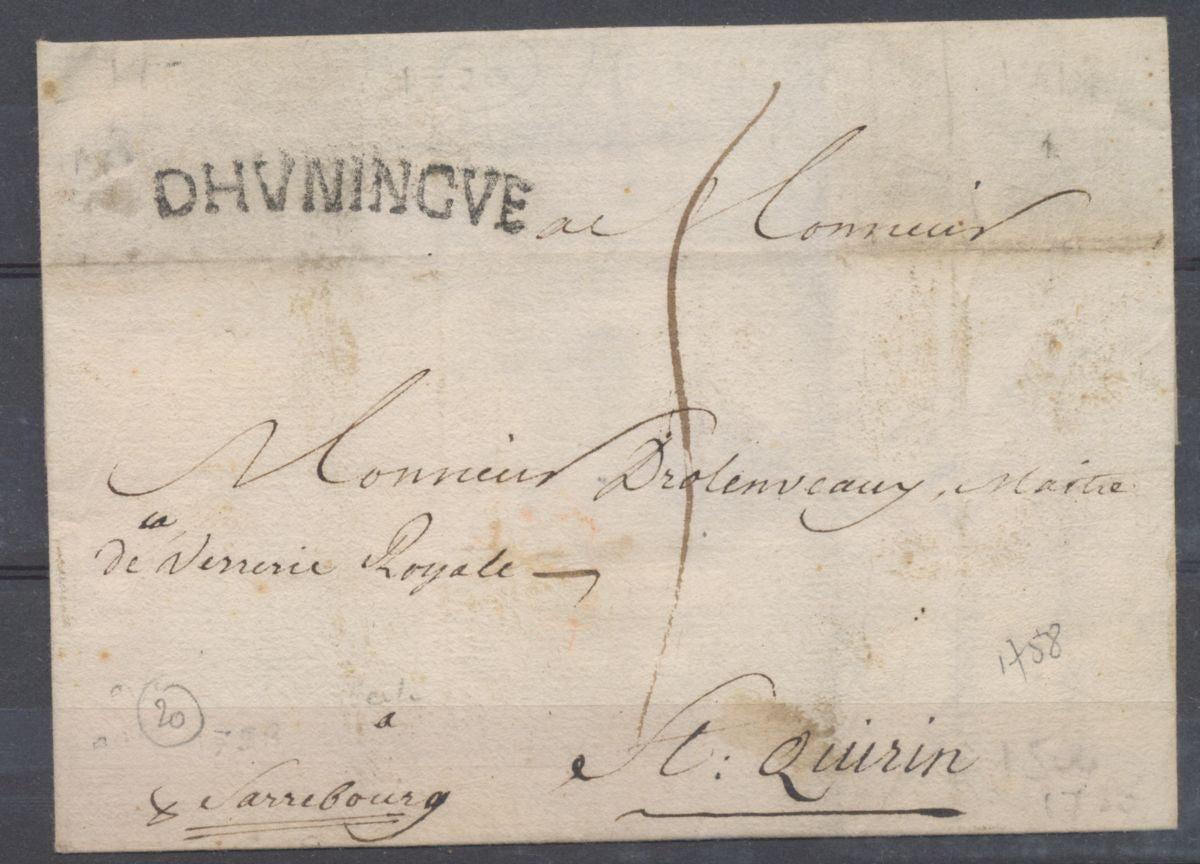 DHVNINGVE
a Monsieur
Monsieur Drolenveaux, Maitre
de la Verrerie Royale
1758
20
a
St: Quirin
Sarrebourg